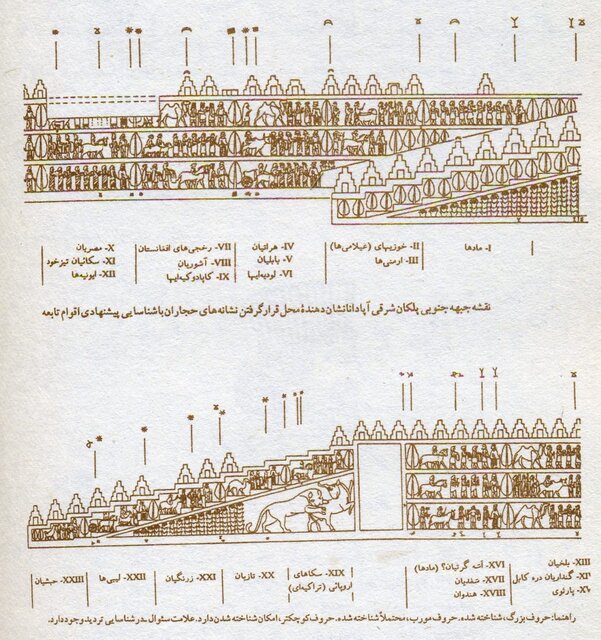 I- مادها
II- خوزیهای (عیلامی‌ها)
III- ارمنی‌ها
IV- هراتیان
V- بابلیان
VI- لودیه‌ایها
VII- رخجی‌های افغانستان
VIII- آشوریان
IX- کاپادوکیه‌ایها
X- مصریان
XI- سکائیان تیزخود
XII- ایونیه‌ها
نقشه جبهه جنوبی پلکان شرقی آپادانا نشان دهندهٔ محل قرار گرفتن نشانه‌های حجاران با شناسایی پیشنهادی اقوام تابعه
XIII- بلخیان
گنداریان دره کابل
پارثوی
XVI- اَسَه گرتیان؟ (مادها)
XVII- سغدیان
XVIII- هندوان
XIX- سکاهای
اروپائی (تراکیه‌ای)
XX- تازیان
XXI- زرنگیان
XXII- لیبی‌ها
XXIII- حبشیان
راهنما: حروف بزرگ، شناخته شده. حروف مورب، محتملاً شناخته شده. حروف کوچکتر، امکان شناخته شدن دارد. علامت سئوال ـ در شناسایی تردید وجود دارد.